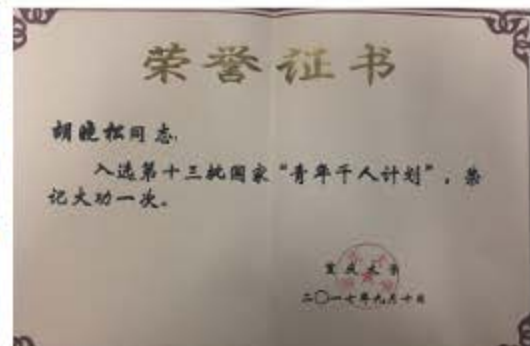 荣誉证书
胡晓松同志,
入选第十三批国家“青年千人计划”，荣
记大功一次。
重庆大学
二〇一七年九月十日